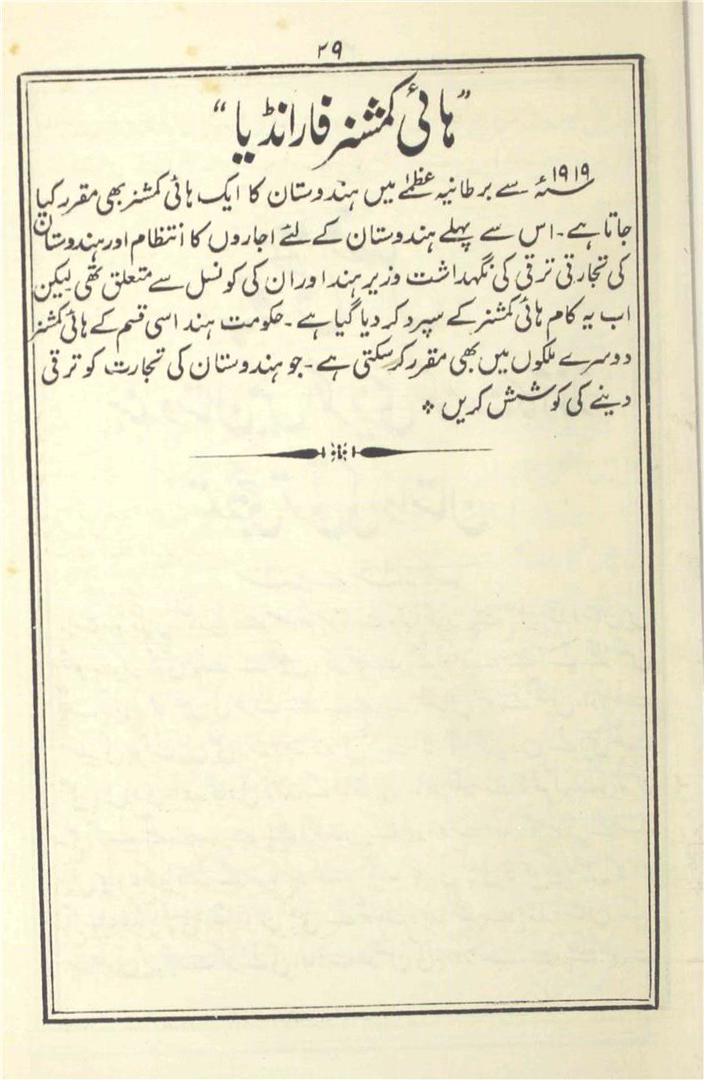 ۲۹
"ہائی کمشنر فار انڈیا"
۱۹۱۹ء سے برطانیہ عظمےٰ میں ہندوستان کا ایک ہائی کمشنر بھی مقرر کیا
جاتا ہے۔ اس سے پہلے ہندوستان کے لئے اجاروں کا انتظام اور ہندوستان
کی تجارتی ترقی کی نگہداشت وزیر ہند اور ان کی کونسل سے متعلق تھی لیکن
اب یہ کام ہائی کمشنر کے سپرد کر دیا گیا ہے۔ حکومت ہند اسی قسم کے ہائی کمشنر
دوسرے ملکوں میں بھی مقرر کر سکتی ہے۔ جو ہندوستان کی تجارت کو ترقی
دینے کی کوشش کریں ÷